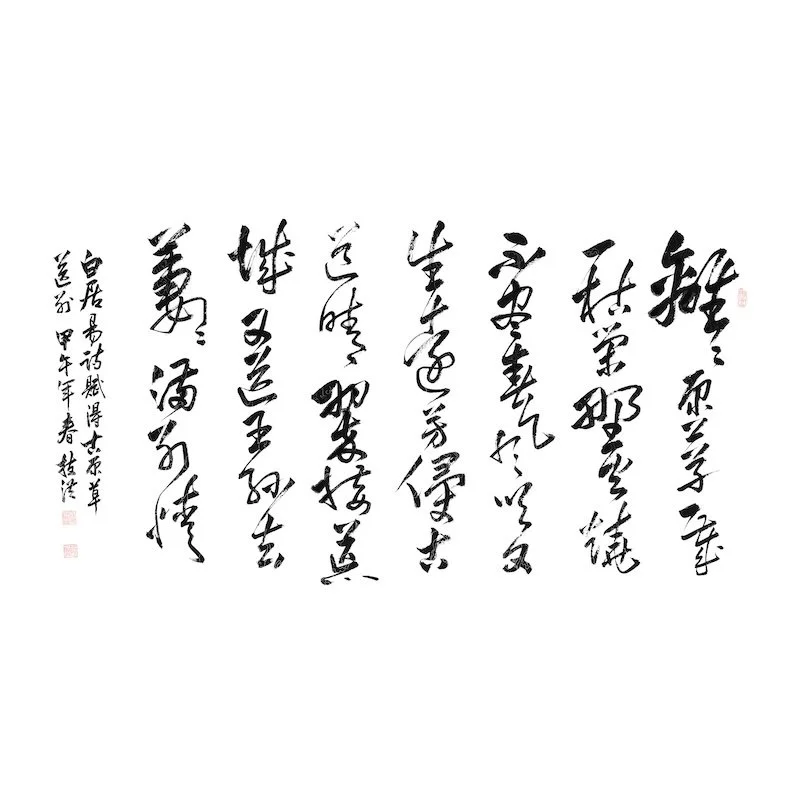 離々原上草一歲
一枯榮野火燒
不盡春風吹又
生遠芳侵古
道晴翠接荒
城又送王孫去
萋々滿別情
白居易詩賦得古原草
送別 甲午年春